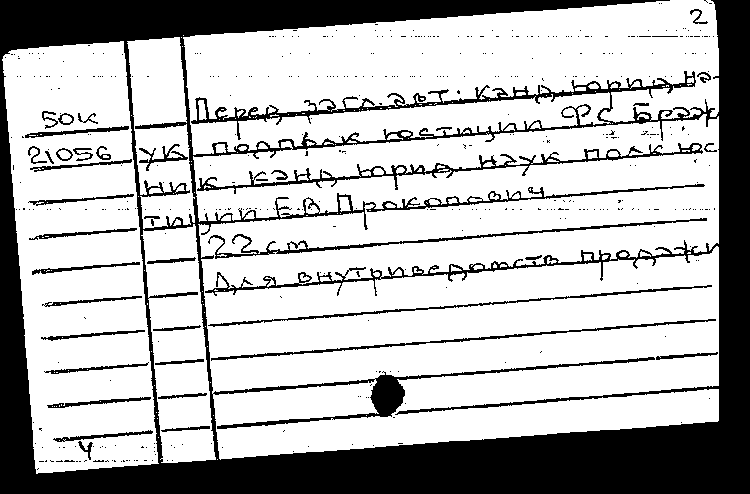 2
50к Перед загл. авт.: канд. юрид. на-
21056 ук подполк юстиции Ф.С Браж
ник, канд. юрид. наук полк юс
тиции Е.В. Прокопович
22 см
Для внутриведомств продажи
4